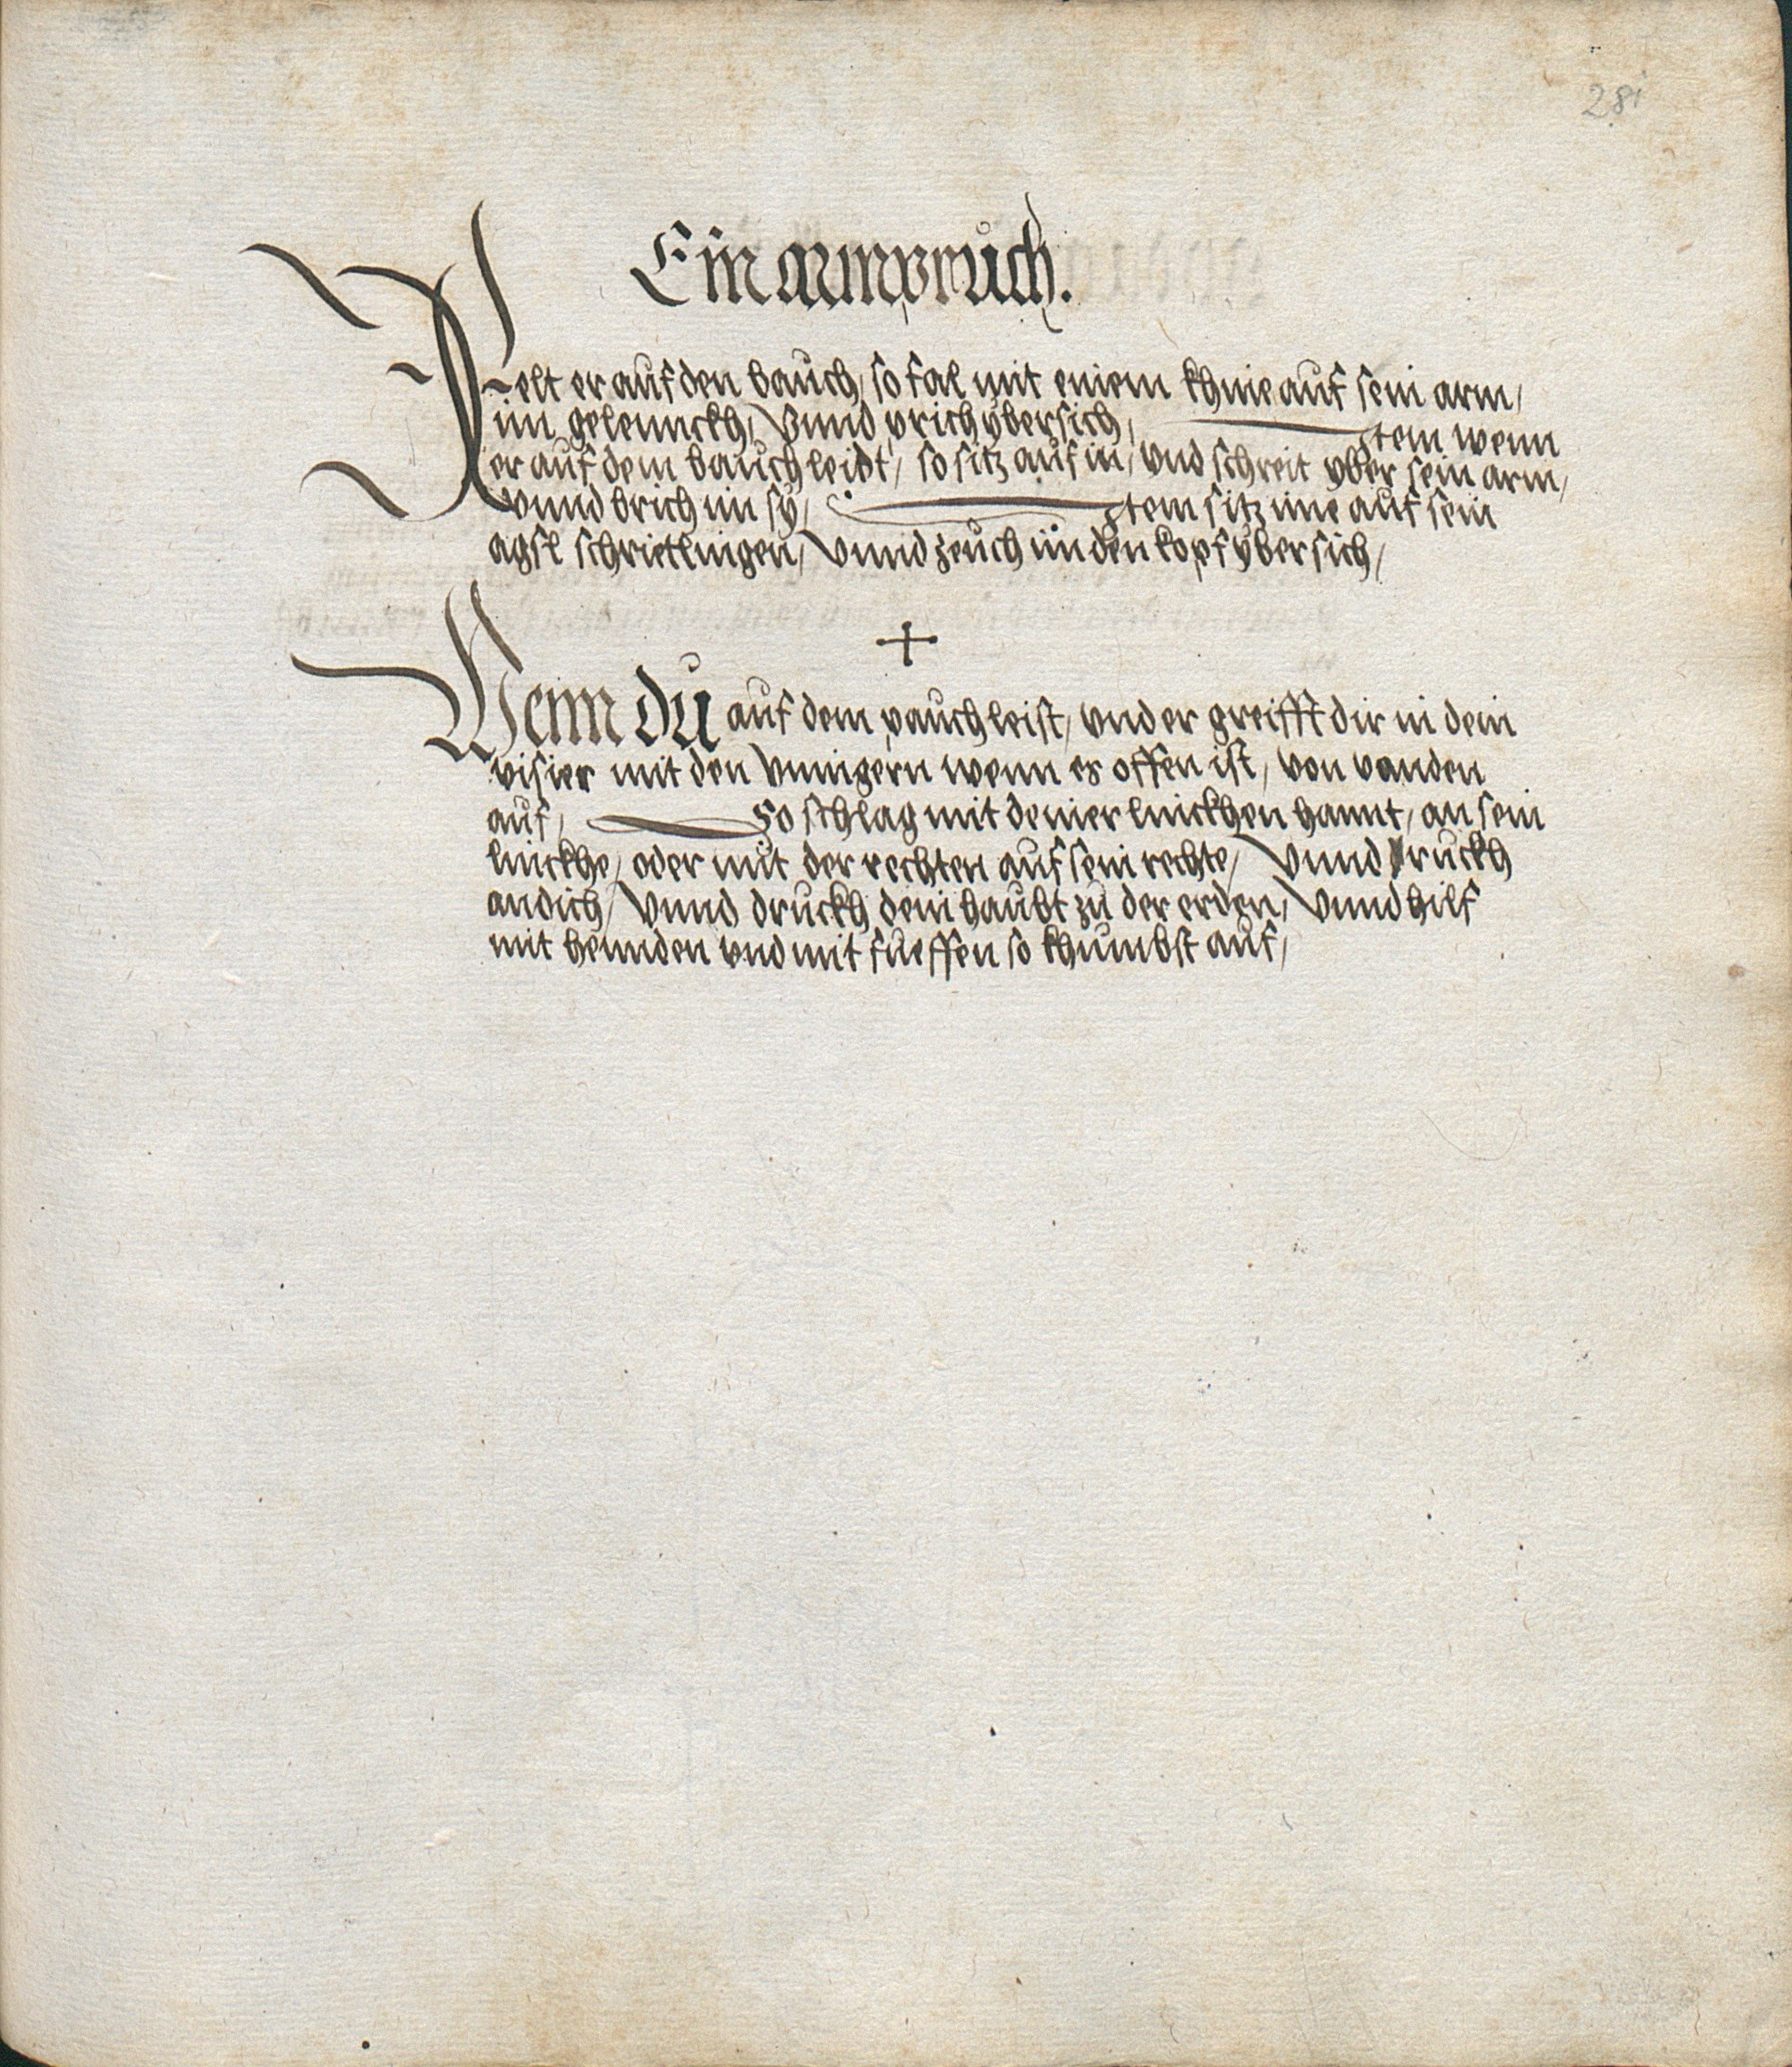 281
Ein armpruch.
Felt er auf den bauch, so fal mit einem khnie auf sein arm,
im gelennckh, Vnnd prich ybersich, Item wenn
er auf dem bauch leidt, so sitz auf in, vnd schreit yber sein arm,
vnnd brich im sy, Item sitz ime auf sein
agsl schrietlingen, Vnnd zeuch im den kopf ybersich,
+
Wenn du auf dem pauch leist, vnd er greifft dir in dein
visier mit den vningern wenn es offen ist, von vanden
auf, So schlag mit deiner linckhen hannt, an sein
linckhe, oder mit der rechten auf sein rechte, Vnnd druckh
an dich, Vnnd druckh dein haubt zu der erden, Vnnd hilf
mit hennden vnd mit fueffen so khumbst auf,